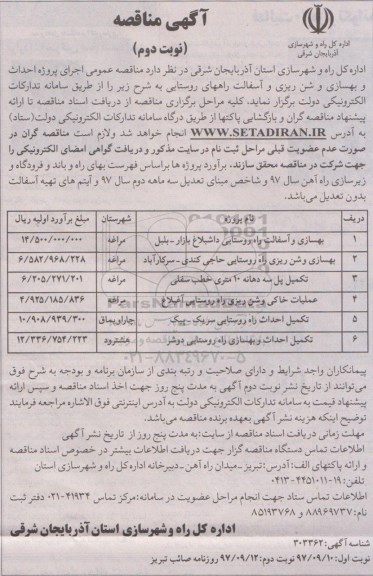 آگهی مناقصه
(نوبت دوم)
اداره کل راه و شهرسازی
آذربایجان شرقی
اداره کل راه و شهرسازی استان آذربایجان شرقی در نظر دارد مناقصه عمومی اجرای پروژه احداث
و بهسازی و شن ریزی و آسفالت راههای روستایی به شرح زیر را از طریق سامانه تدارکات
الکترونیکی دولت برگزار نماید. کلیه مراحل برگزاری مناقصه از دریافت اسناد مناقصه تا ارائه
پیشنهاد مناقصه گران و بازگشایی پاکتها از طریق درگاه سامانه تدارکات الکترونیکی دولت(ستاد)
به آدرس WWW.SETADIRAN.IR انجام خواهد شد ولازم است مناقصه گران در
صورت عدم عضویت قبلی مراحل ثبت نام در سایت مذکور و دریافت گواهی امضای الکترونیکی را
جهت شرکت در مناقصه محقق سازند. برآورد پروژه ها براساس فهرست بهای راه و باند و فرودگاه و
زیرسازی راه آهن سال ۹۷ و شاخص مبنای تعدیل سه ماهه دوم سال ۹۷ و آیتم های تهیه آسفالت
بدون تعدیل می‌باشد.
ردیف نام پروژه شهرستان مبلغ برآورد اولیه ریال
۱ بهسازی و آسفالت راه روستایی داشبلاغ بازار - بلبل مراغه ۱۴/۵۰۰/۰۰۰/۰۰۰
۲ بهسازی وشن ریزی راه روستایی حاجی کندی - سرکارآباد مراغه ۶/۵۸۲/۹۶۸/۲۲۸
۳ تکمیل پل سه دهانه ۱۰ متری خطب سفلی مراغه ۶/۲۰۵/۲۷۱/۲۰۱
۴ عملیات خاکی وشن ریزی راه روستایی آغبلاغ مراغه ۴/۹۲۵/۱۸۵/۸۳۶
۵ تکمیل احداث راه روستایی سریک - بیگ چاراویماق ۱۰/۹۰۸/۹۳۹/۳۰۰
۶ تکمیل احداث و بهسازی راه روستایی دوشز هشترود ۱۲/۳۳۶/۷۵۴/۲۲۳
پیمانکاران واجد شرایط و دارای صلاحیت و رتبه بندی از سازمان برنامه و بودجه به شرح فوق
می‌توانند از تاریخ نشر نوبت دوم آگهی به مدت پنج روز جهت اخذ اسناد مناقصه و سپس ارائه
پیشنهاد قیمت به سامانه تدارکات الکترونیکی دولت به آدرس اینترنتی فوق الاشاره مراجعه فرمایند
توضیح اینکه هزینه نشر آگهی بعهده برنده مناقصه می‌باشد.
مهلت زمانی دریافت اسناد مناقصه از سایت:به مدت پنج روز از تاریخ نشر آگهی
اطلاعات تماس دستگاه مناقصه گزار جهت دریافت اطلاعات بیشتر در خصوص اسناد مناقصه
و ارائه پاکتهای الف:آدرس:تبریز ـ میدان راه آهن ـ دبیرخانه اداره کل راه و شهرسازی استان
تلفن:۱۹-۴۴۵۱۰۱۱-۰۴۱۳
اطلاعات تماس ستاد جهت انجام مراحل عضویت در سامانه:مرکز تماس ۴۱۹۳۴-۰۲۱ دفتر ثبت
نام:۸۸۹۶۹۷۳۷ و ۸۵۱۹۳۷۶۸
اداره کل راه وشهرسازی استان آذربایجان شرقی
شناسه آگهی:۳۰۳۳۶۲
نوبت اول:۹۷/۰۹/۱۰ نوبت دوم:۹۷/۰۹/۱۲ روزنامه صائب تبریز